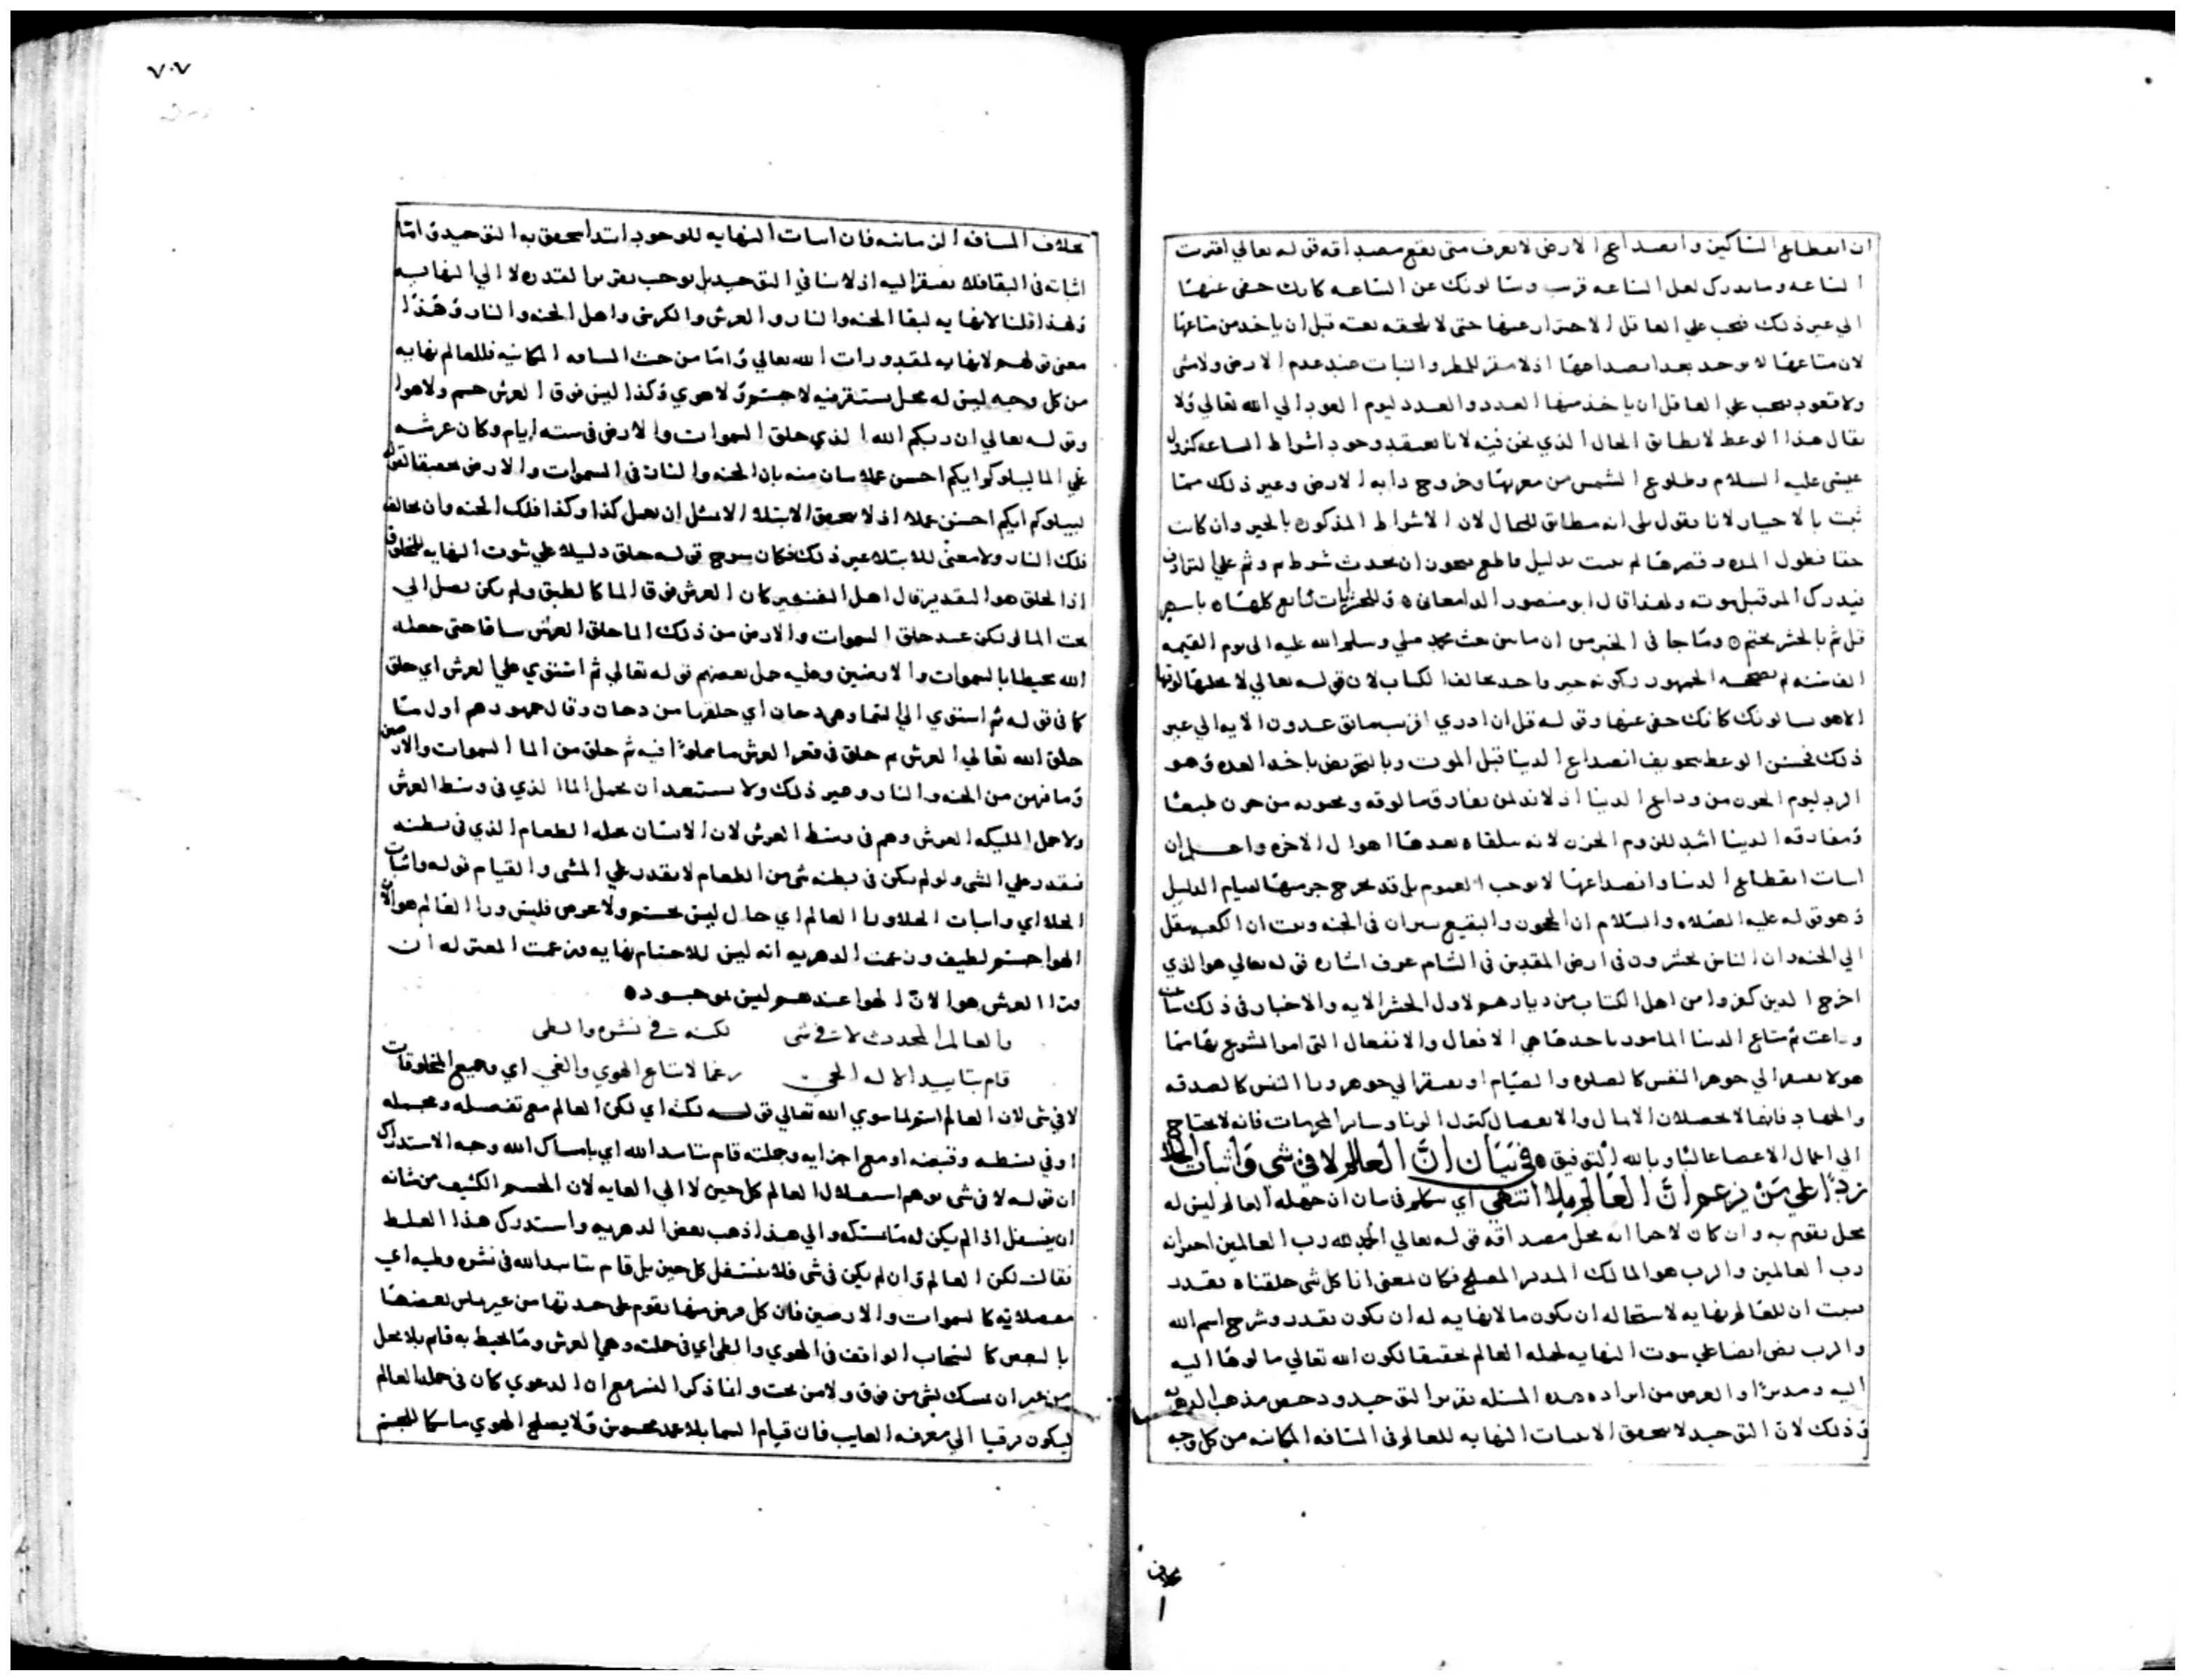 ان انقطاع الساكنين وانصداع الارض لا يعرف متى يقع مصداقه قوله تعالي اقتربت
الساعه وما يدرك لعل الساعه قريب ويسالونك عن الساعه كانك حفي عنها
الي غير ذلك فيجب علي العاقل الاحتراز عنها حتى لا يلحقه بغته قبل ان ياخذ من متاعها
لان متاعها لا يوجد بعد انصداعها اذ لا مقر للمطر والنبات عند عدم الارض ولا مشي
ولا قعود فيجب علي العاقل ان ياخذ منها العدد والعدد ليوم العود الي الله تعالي ولا
يقال هذا الوعظ لا يطابق الحال الذي نحن فيه لانا نعتقد وجود اشراط الساعه كنزول
عيسى عليه السلام وطلوع الشمس من مغربها وخروج دابه الارض وغير ذلك مما
ثبت بالاخبار لانا نقول بلى انه مطابق للحال لان الاشراط المذكوره بالخبر وان كانت
حقا فطول المده وقصرها لم يثبت بدليل قاطع فيجوز ان يحدث شرط ثم وثم علي الترادف
فيدرك المرو قبل موته ولهذا قال ابو منصور الدامغاني ه وللحشر ايات تتابع كلها ه باسهر
قل ثم بالحشر يختم ه وما جا في الخبر من ان ما بين حث محمد صلي وسلم الله عليه الى يوم القيمه
الف سنه لم يصححه الجمهور ولكونه خبر واحد يخالف الكتاب لان قوله تعالي لا يجليها لوقتها
الا هو يسالونك كانك حفي عنها وقوله قل ان ادري اقريب ما توعدون الايه الي غير
ذلك فحسن الوعظ بتخويف انصداع الدنيا قبل الموت وبالتحريض باخذ العده وهو
الزاد ليوم الحزن من وداع الدنيا اذ لا بد لمن يفارق مالوفه ومحبوبه من حزن طبعا
ومفارقه الدنيا اشد للزوم الحزن لانه يلقاه بعدها اهوال الاخره واعلم ان
اثبات انقطاع الدنيا وانصداعها لا يوجب العموم بل قد يخرج جز منها لقيام الدليل
وهو قوله عليه الصلاه والسلام ان الحجون والبقيع ينثران في الجنه وثبت ان الكعبه تنقل
الي الجنه وان الناس يحشرون في ارض المقدس في الشام عرف اشاره قوله تعالي هو الذي
اخرج الذين كفروا من اهل الكتاب من ديارهم لاول الحشر الايه والاخبار في ذلك
ثم متاع الدنيا المامور باخذها هي الافعال والانفعال التي امر الشرع بها مما
هو لا يفتقر الي جوهر النفس كالصلوه والصيام او يفتقر الي جوهر وراا النفس كالصدقه
والجهاد فانها لا يحصلان الا بمال والانفصال كترك الزنا وساير المحرمات فانه لا يحتاج
الي اعمال الاعضا غالبا وبالله التوفيق ه في بيان ان العالم لا في شي واثبات الخلا
ردا علي من يزعم ان العالم بلا انتهي اي نتكلم في بيان ان جمله العالم ليس له
محل يقوم به وان كان لاجزاايه محل مصداقه قوله تعالي الحمد لله رب العالمين اخبر انه
رب العالمين والرب هو المالك المدبر المصلح فكان لمعنى انا كل شي خلقناه بقدر
فيثبت ان للعالم نهايه لاستحاله ان يكون ما لا نهايه له ان يكون بقدر وشرح اسم الله
والرب نص ايضا علي ثبوت النهايه لجمله العالم تحقيقا لكون الله تعالي مالوها اليه
اليه ومدبرا والغرض من ايراد هذه المسئله تقرير التوحيد ودحض مذهب الدهريه
وذلك لان التوحيد لا يتحقق الا باثبات النهايه للعالم في المسافه المكانيه من كل وجه
بخلاف
٧٠٧
بخلاف المسافه الزمانيه فان اثبات النهايه للوجود ابتدا يتحقق به التوحيد واما
اثباته في البقا فلا يفتقر اليه اذ لا ينافي التوحيد بل يوجب تقرير القدره لا الي النهايه
ولهذا قلنا لا نهايه لبقا الجنه والنار والعرش والكرسي واهل الجنه والنار وهذا
معنى قولهم لا نهايه لمقدورات الله تعالي واما من حيث المسافه المكانيه فللعالم نهايه
من كل وجه ليس له محل يستقر فيه لا جسم ولا هوي وكذا ليس فوق العرش جسم ولا هوا
وقوله تعالي ان ربكم الله الذي خلق السموات والارض في سته ايام وكان عرشه
علي الما ليبلوكم ايكم احسن عملا بيان منه بان الجنه والنار في السموات والارض تحقيقا لقوله
ليبلوكم ايكم احسن عملا اذ لا يتحقق الابتلا الا بمثل ان يعمل كذا وكذا فلك الجنه وان يخالف
فلك النار ولا معنى للابتلا غير ذلك فكان بوح قوله خلق دليلا علي ثبوت النهايه للمخلوق
اذ الخلق هو التقدير قال اهل التفسير كان العرش فوق الما كالطبق ولم يكن يصل الي
تحت الما ولكن عند خلق السموات والارض من ذلك الما خلق العرش ساقا حتى جعله
الله محيطا بالسموات والارضين وعليه حمل بعضهم قوله تعالي ثم استوي علي العرش اي خلق
كما في قوله ثم استوي الي السما وهي دخان اي خلقها من دخان وقال جمهورهم اول ما
خلق الله تعالي العرش ثم خلق في قعر العرش ما مملوا فيه ثم خلق من الما السموات والارض
وما فيهن من الجنه والنار وغير ذلك ولا يستبعد ان يحمل الما الذي في وسط العرش
ولا حمل المليكه العرش وهم في وسط العرش لان الانسان يحمله الطعام الذي في بطنه
فيقدر علي المشي ولو لم يكن في بطنه شي من الطعام لا يقدر علي المشي والقيام قوله واثبات
الخلا اي واثبات الخلا ورا العالم اي حال ليس بجسم ولا عرض فليس ورا العالم هوا لان
الهوا جسم لطيف وزعمت الدهريه انه ليس للاجسام نهايه وزعمت المعتزله ان
ورا العرش هوا لان الهوا عندهم ليس بموجود ه
والعالم المحدث لا في شي لكنه في نشره والطي
قام بتاييد الاله الحي رغما لاتباع الهوي والغي اي وجميع المخلوقات
لا في شي لان العالم اسم لما سوي الله تعالي قوله لكنه اي لكن العالم مع تفصيله ومجمله
او في بسطه وقبضه او مع اجزايه وجملته قام بتاييد الله اي بامساك الله وجه الاستدراك
ان قوله لا في شي يوهم استفلال العالم كل حين لا الي الغايه لان الجسم الكثيف من شانه
ان يتسفل اذا لم يكن له ما يمسكه والي هذا ذهب بعض الدهريه واستدرك هذا الغلط
فقال لكن العالم وان لم يكن في شي فلا يتسفل كل حين بل قام بتاييد الله في نشره وطيه اي
مفصلاته كالسموات والارضين فان كل فرض منها يقوم على حدتها من غير ماس بعضها
بالبعض كالسحاب الواقف في الهوي والطي اي في جملته وهي العرش وما يحيط به قام بلا محل
من غير ان يمسك بشي من فوق ولا من تحت وانما ذكر النشر مع ان الدعوي كان في جمله العالم
ليكون ترقيا الي معرفه الغايب فان قيام السما بلا عمد محسوس ولا يصلح الهوي ماسكا للجسم